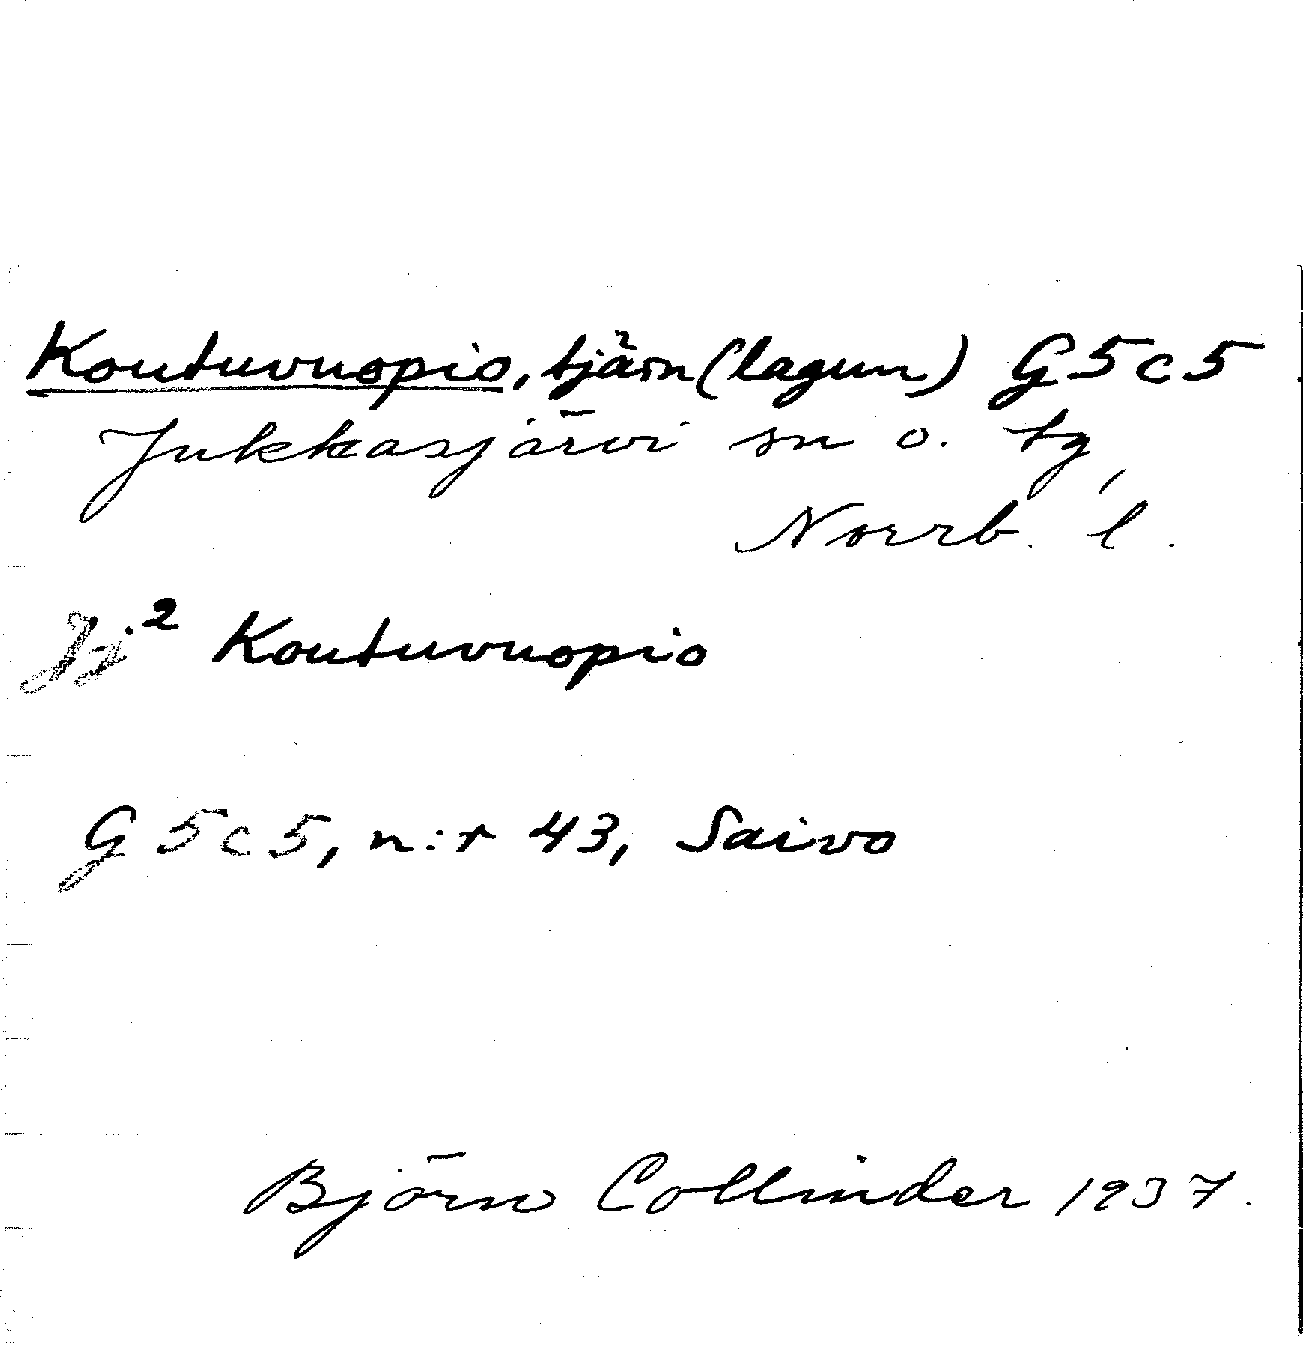 Koutuvuopio, tjärn (lagun) G5c5
Jukkasjärvi sn o. tg,
Norrb. l.
Jj² Koutuvuopio
G 5c5, n:r 43, Saivo
Björn Collinder 1937.